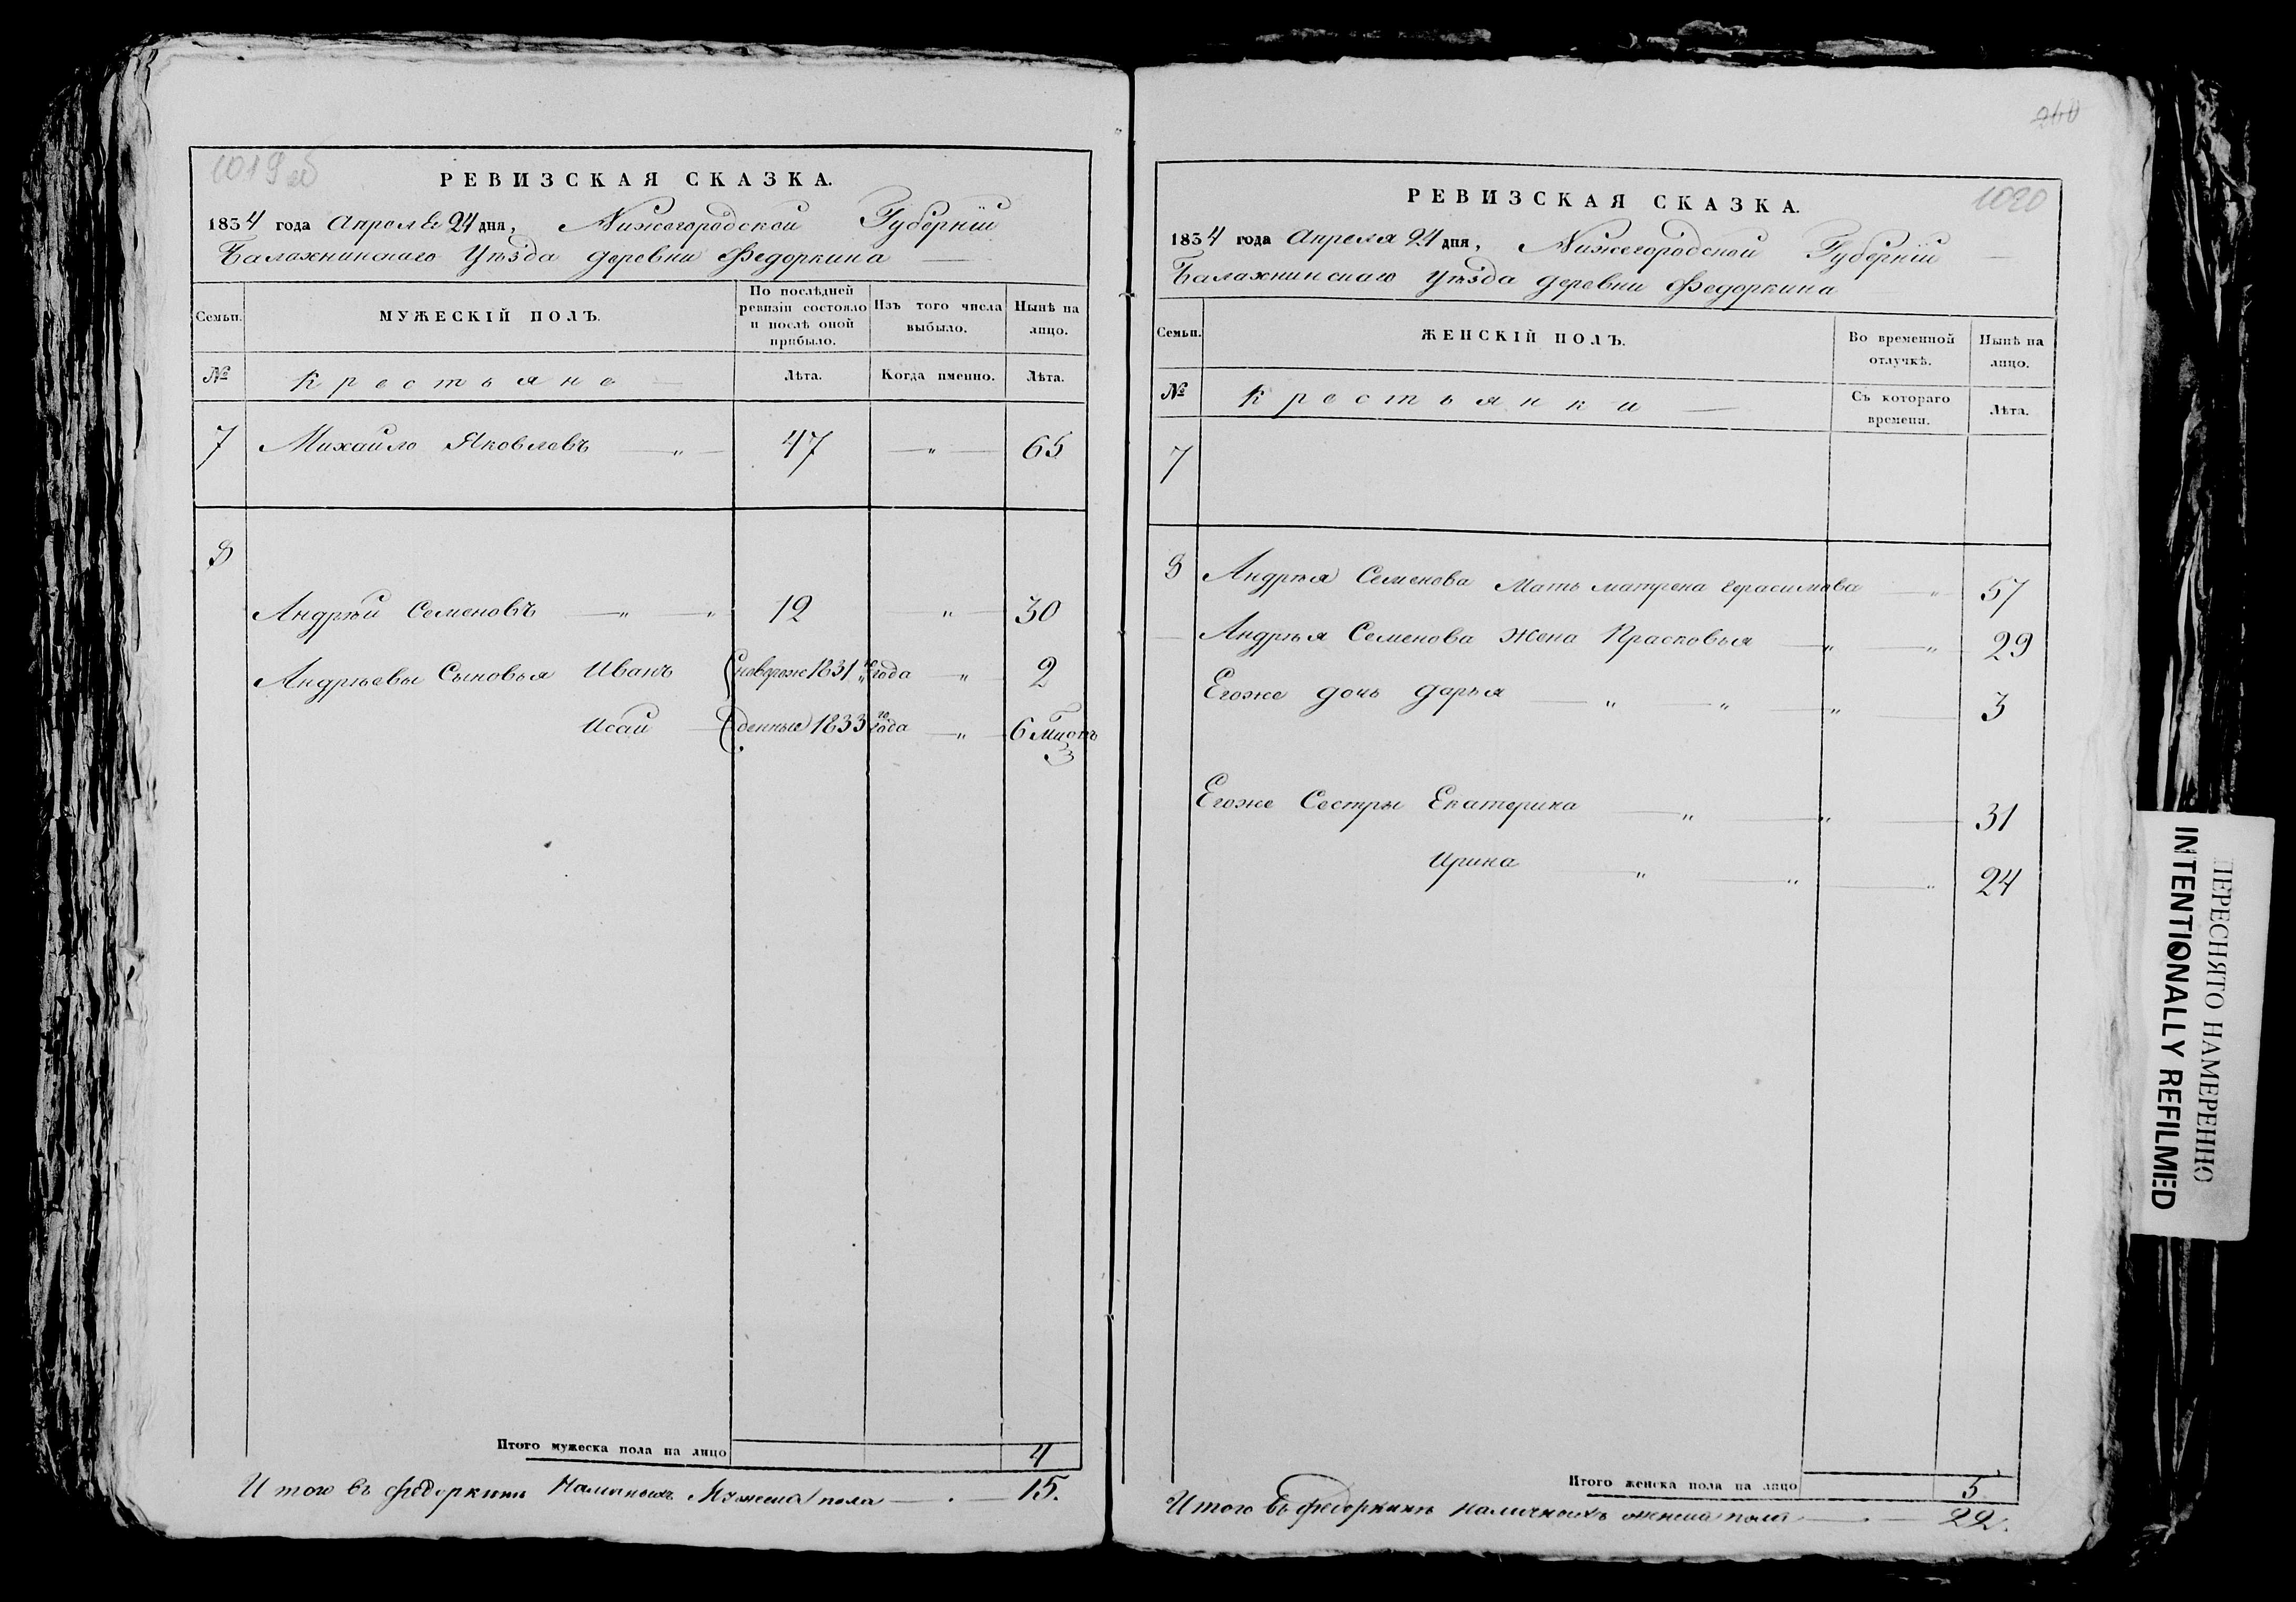 1019об
РЕВИЗСКАЯ СКАЗКА.
1834 года Апреля 24 дня, Нижегородской Губерніи
Балахнинскаго Уѣзда деревни Федоркина
Семьи.
МУЖЕСКІЙ ПОЛЪ.
По послѣдней ревизіи состояло и послѣ оной прибыло.
Изъ того числа выбыло.
Нынѣ на лицо.
№
Крестьяне
Лѣта.
Когда именно.
Лѣта.
7 Михайло Яковлевъ — " — 47 — " — 65
8
Андрѣй Семеновъ — " — " 12 " 30
Андрѣевы Сыновья Иванъ новорож 1831го года — " — 2
Исай — денные 1833го года — " — 6 Мцовъ
3
Итого мужеска пола на лицо 4
Итого въ Федоркинѣ Наличныхъ Мужеска пола — . — 15.
260
1020
РЕВИЗСКАЯ СКАЗКА.
1834 года Апреля 24 дня, Нижегородской Губерніи
Балахнинскаго Уѣзда деревни Федоркина
Семьи.
ЖЕНСКІЙ ПОЛЪ.
Во временной отлучкѣ.
Нынѣ на лицо.
№
Крестьянки —
Съ котораго времени.
Лѣта.
7
8 Андрѣя Семенова Мать матрена герасимова — " — 57
Андрѣя Семенова Жена Прасковья — " — " — 29
Егоже дочь дарья — " — " — " — 3
Егоже Сестры Екатерина — " — " — 31
Ирина " — " — " 24
Итого женска пола на лицо 5
Итого въ федоркинѣ наличныхъ женска пола — . — 22.
ПЕРЕСНЯТО НАМЕРЕННО
INTENTIONALLY REFILMED